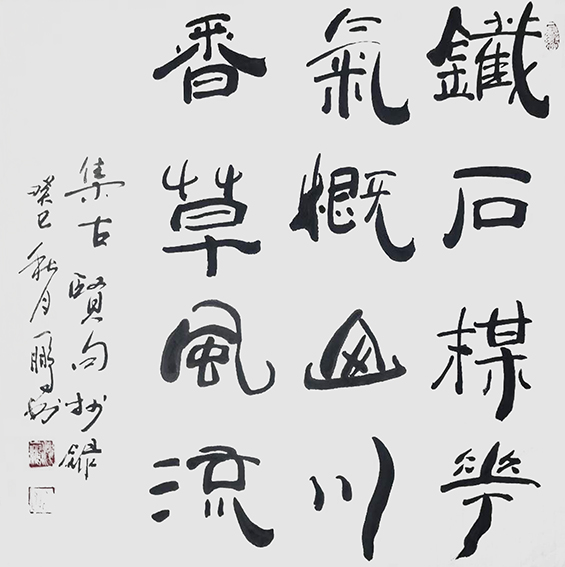 鐵石楳華
氣概山川
香草風流
集古賢句抄錄
癸巳秋月鵬